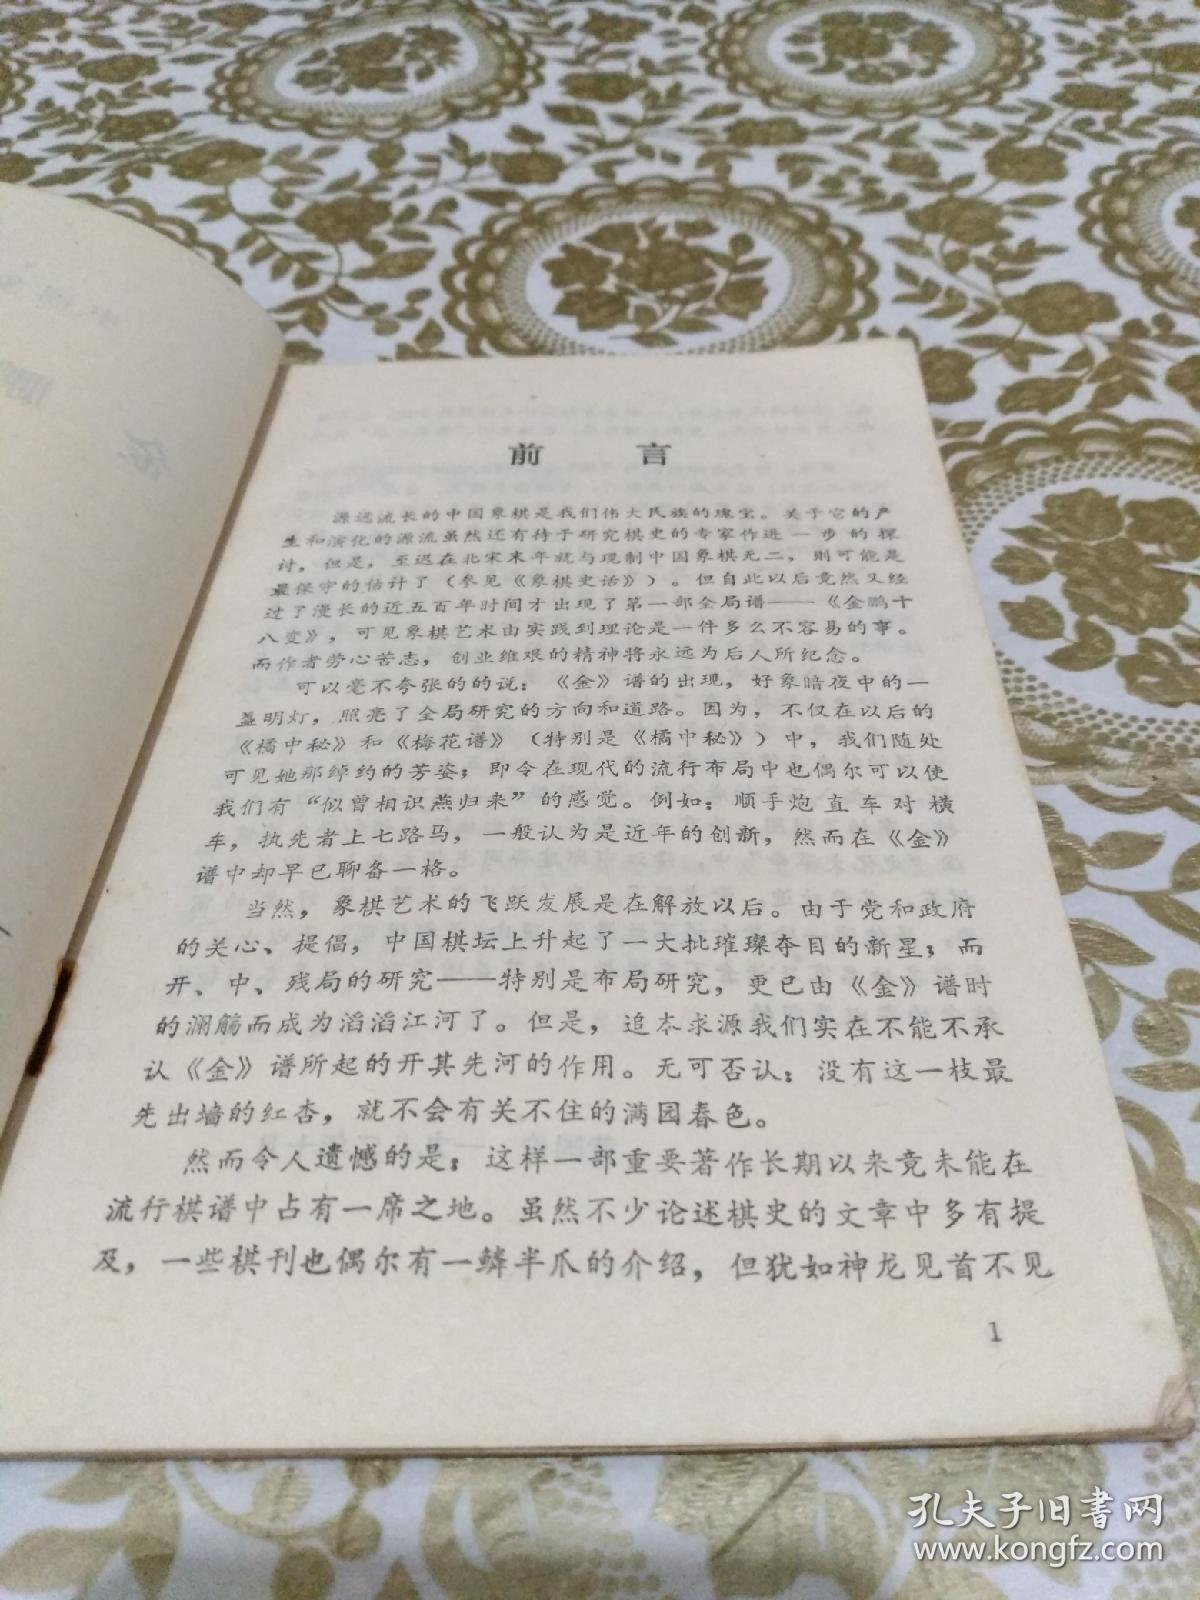 前言
源远流长的中国象棋是我们伟大民族的瑰宝。关于它的产
生和演化的源流虽然还有待于研究棋史的专家作进一步的探
讨，但是，至迟在北宋末年就与现制中国象棋无二，则可能是
最保守的估计了（参见《象棋史话》）。但自此以后竟然又经
过了漫长的近五百年时间才出现了第一部全局谱——《金鹏十
八变》，可见象棋艺术由实践到理论是一件多么不容易的事。
而作者劳心苦志，创业维艰的精神将永远为后人所纪念。
可以毫不夸张的的说：《金》谱的出现，好象暗夜中的一
盏明灯，照亮了全局研究的方向和道路。因为，不仅在以后的
《橘中秘》和《梅花谱》（特别是《橘中秘》）中，我们随处
可见她那绰约的芳姿；即令在现代的流行布局中也偶尔可以使
我们有“似曾相识燕归来”的感觉。例如：顺手炮直车对横
车，执先者上七路马，一般认为是近年的创新，然而在《金》
谱中却早已聊备一格。
当然，象棋艺术的飞跃发展是在解放以后。由于党和政府
的关心、提倡，中国棋坛上升起了一大批璀璨夺目的新星；而
开、中、残局的研究——特别是布局研究，更已由《金》谱时
的澜觞而成为滔滔江河了。但是，追本求源我们实在不能不承
认《金》谱所起的开其先河的作用。无可否认：没有这一枝最
先出墙的红杏，就不会有关不住的满园春色。
然而令人遗憾的是：这样一部重要著作长期以来竟未能在
流行棋谱中占有一席之地。虽然不少论述棋史的文章中多有提
及，一些棋刊也偶尔有一鳞半爪的介绍，但犹如神龙见首不见
1
孔夫子旧书网
www.kongfz.com